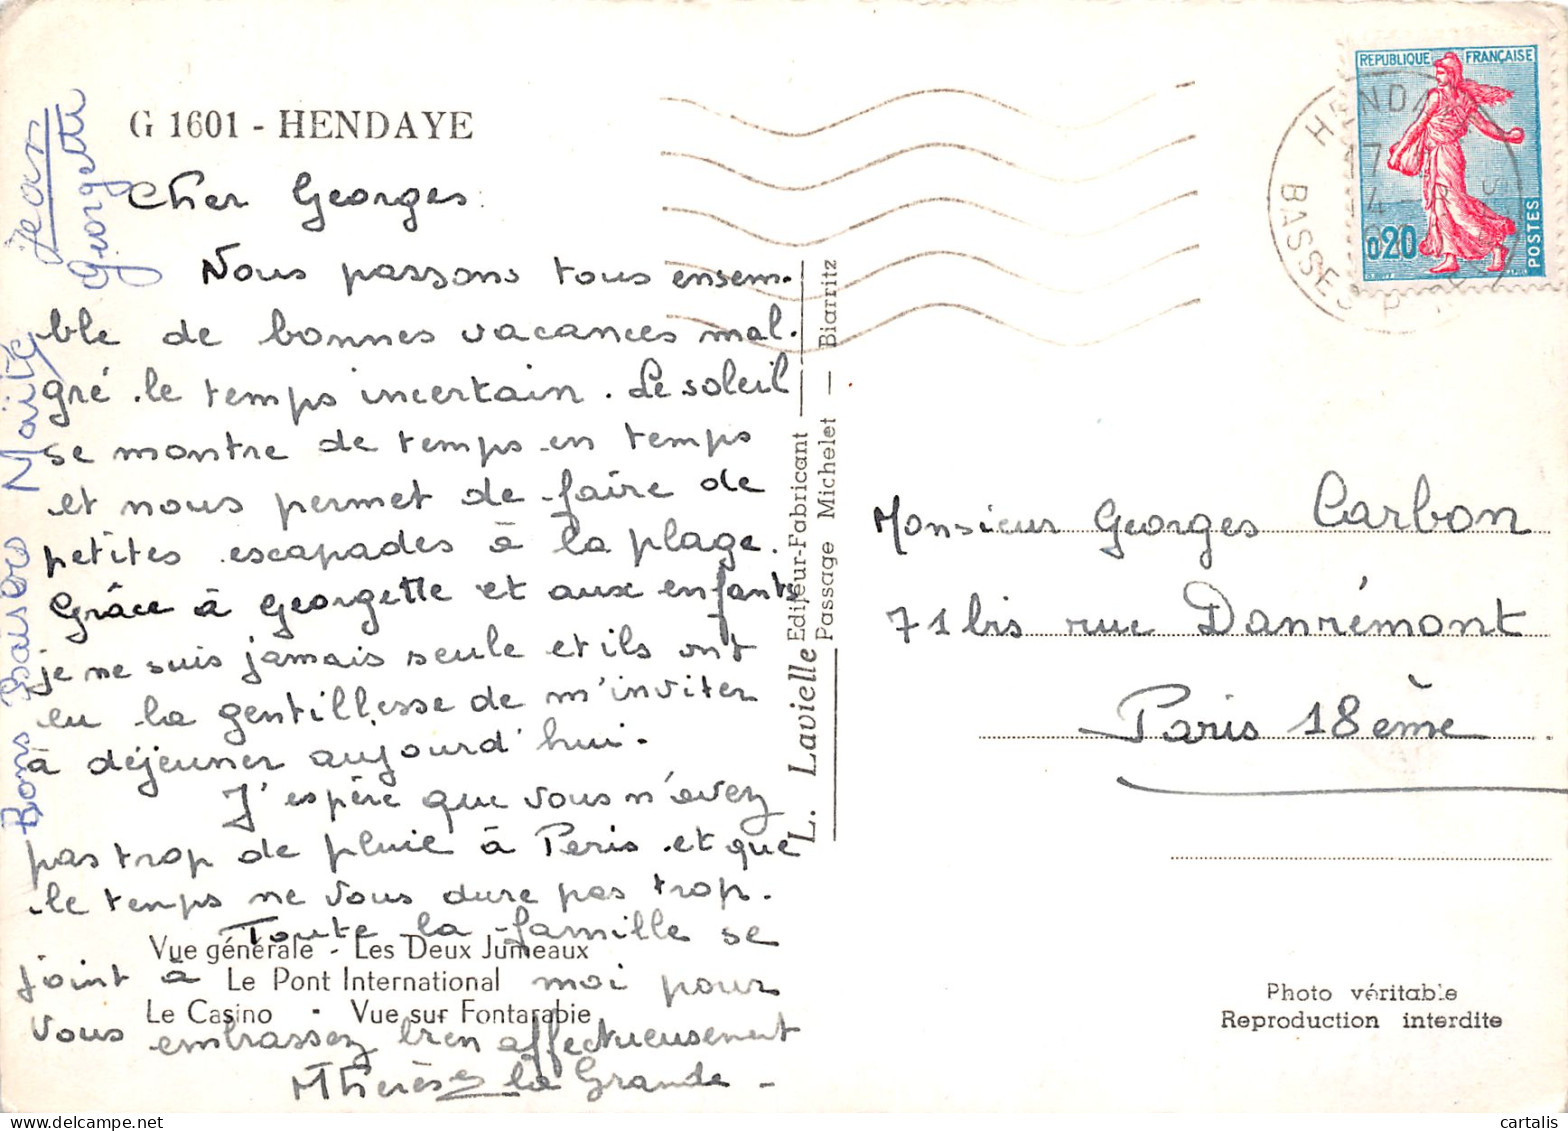 G 1601 - HENDAYE
Cher Georges.
Nous passons tous ensem-
ble de bonnes vacances mal-
gré le temps incertain. Le soleil
se montre de temps en temps
et nous permet de faire de
petites escapades à la plage.
Grâce à Georgette et aux enfants
je ne suis jamais seule et ils ont
eu la gentillesse de m'inviter
à déjeuner aujourd'hui.
J'espère que vous n'avez
pas trop de pluie à Paris et que
le temps ne vous dure pas trop.
Toute la famille se
joint à moi pour
vous embrasser bien affectueusement
MThérèse la Grande -
Vue générale - Les Deux Jumeaux
Le Pont International
Le Casino - Vue sur Fontarabie
Bons Baisers Maïté
Jean
Georgette
L. Lavielle Editeur-Fabricant
Passage Michelet — Biarritz
REPUBLIQUE FRANÇAISE
0,20
POSTES
HENDA
17
4 -
BASSES P
Monsieur Georges Carbon
71 bis rue Danrémont
Paris 18ème
Photo véritable
Reproduction interdite
cartalis